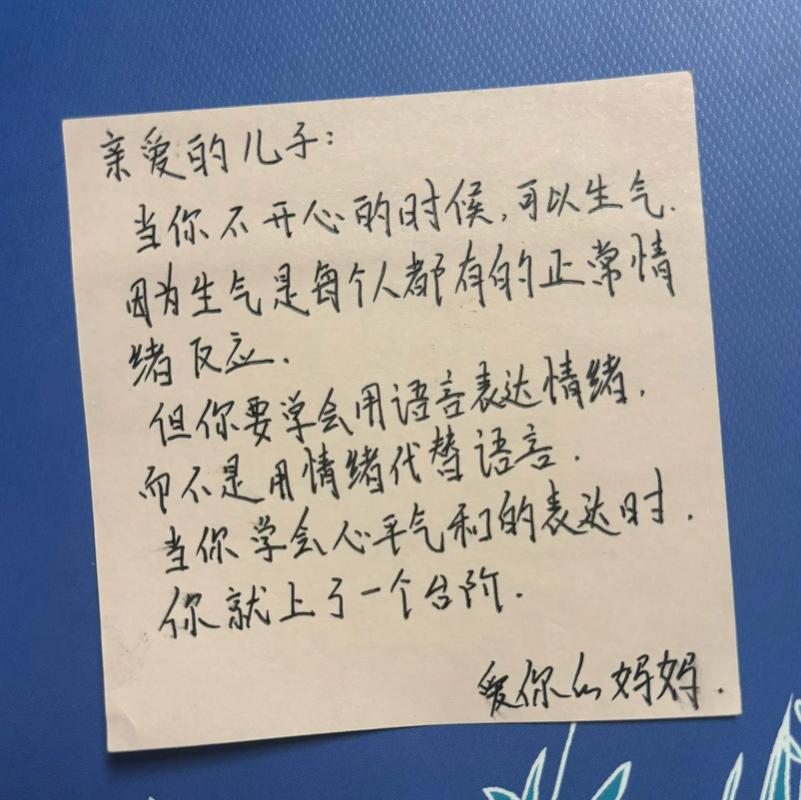 亲爱的儿子:
当你不开心的时候,可以生气.
因为生气是每个人都有的正常情
绪反应.
但你要学会用语言表达情绪.
而不是用情绪代替语言.
当你学会心平气和的表达时.
你就上了一个台阶.
爱你的妈妈.